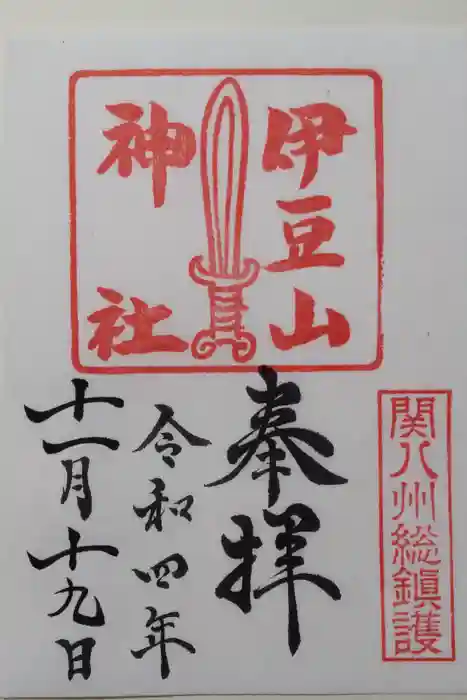 関八州総鎮護
伊豆山
神社
奉拝
令和四年
十一月十九日